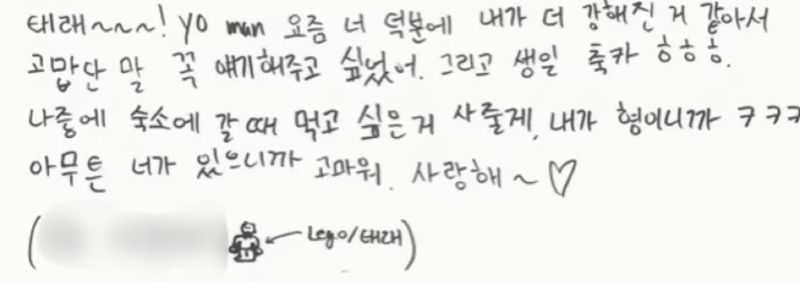 태래~~~! yo man 요즘 너 덕분에 내가 더 강해진 거 같아서
고맙단 말 꼭 얘기해주고 싶었어. 그리고 생일 축카 ㅎㅎㅎ.
나중에 숙소에 갈 때 먹고 싶은거 사줄게, 내가 형이니까 ㅋㅋㅋ
아무튼 너가 있으니까 고마워. 사랑해~♡
( ←Lego/태래)